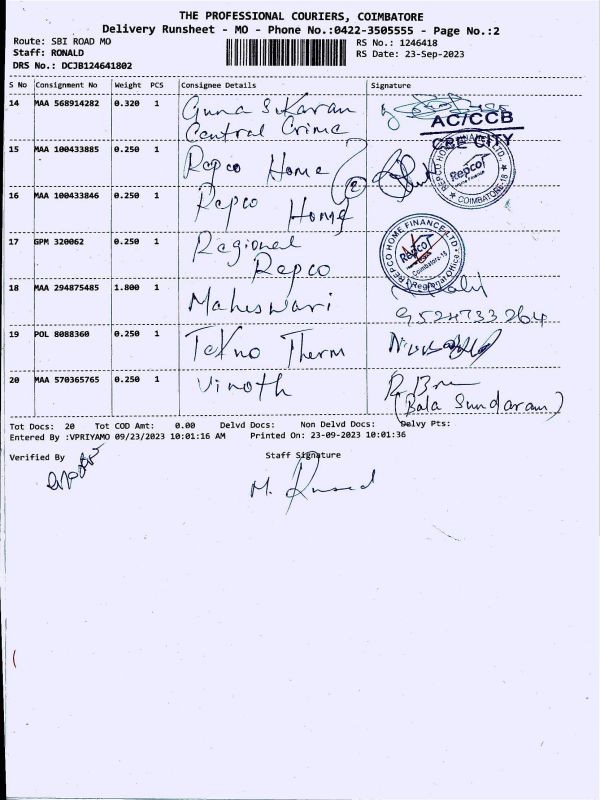 THE PROFESSIONAL COURIERS, COIMBATORE
Delivery Runsheet - MO - Phone No.:0422-3505555 - Page No.:2
Route: SBI ROAD MO
RS No.: 1246418
Staff: RONALD
RS Date: 23-Sep-2023
DRS No.: DCJB124641802
S No Consignment No Weight PCS Consignee Details Signature
14 MAA 568914282 0.320 1 Guna Sekaran
Central Crime
AC/CCB
CBE CITY
15 MAA 100433885 0.250 1 Repco Home
2
REPCO HOME FINANCE LTD.
Repco
Home Finance
COIMBATORE-18
16 MAA 100433846 0.250 1 Repco Home
17 GPM 320062 0.250 1 Regional
Repco
REPCO HOME FINANCE LTD
Repco
Coimbatore-18
Regional Office
18 MAA 294875485 1.800 1 Maheswari
9524733264
19 POL 8088360 0.250 1 Tekno Therm
20 MAA 570365765 0.250 1 Vinoth
(Bala Sundaram)
Tot Docs: 20 Tot COD Amt: 0.00 Delvd Docs: Non Delvd Docs: Delvy Pts:
Entered By :VPRIYAMO 09/23/2023 10:01:16 AM Printed On: 23-09-2023 10:01:36
Verified By Staff Signature